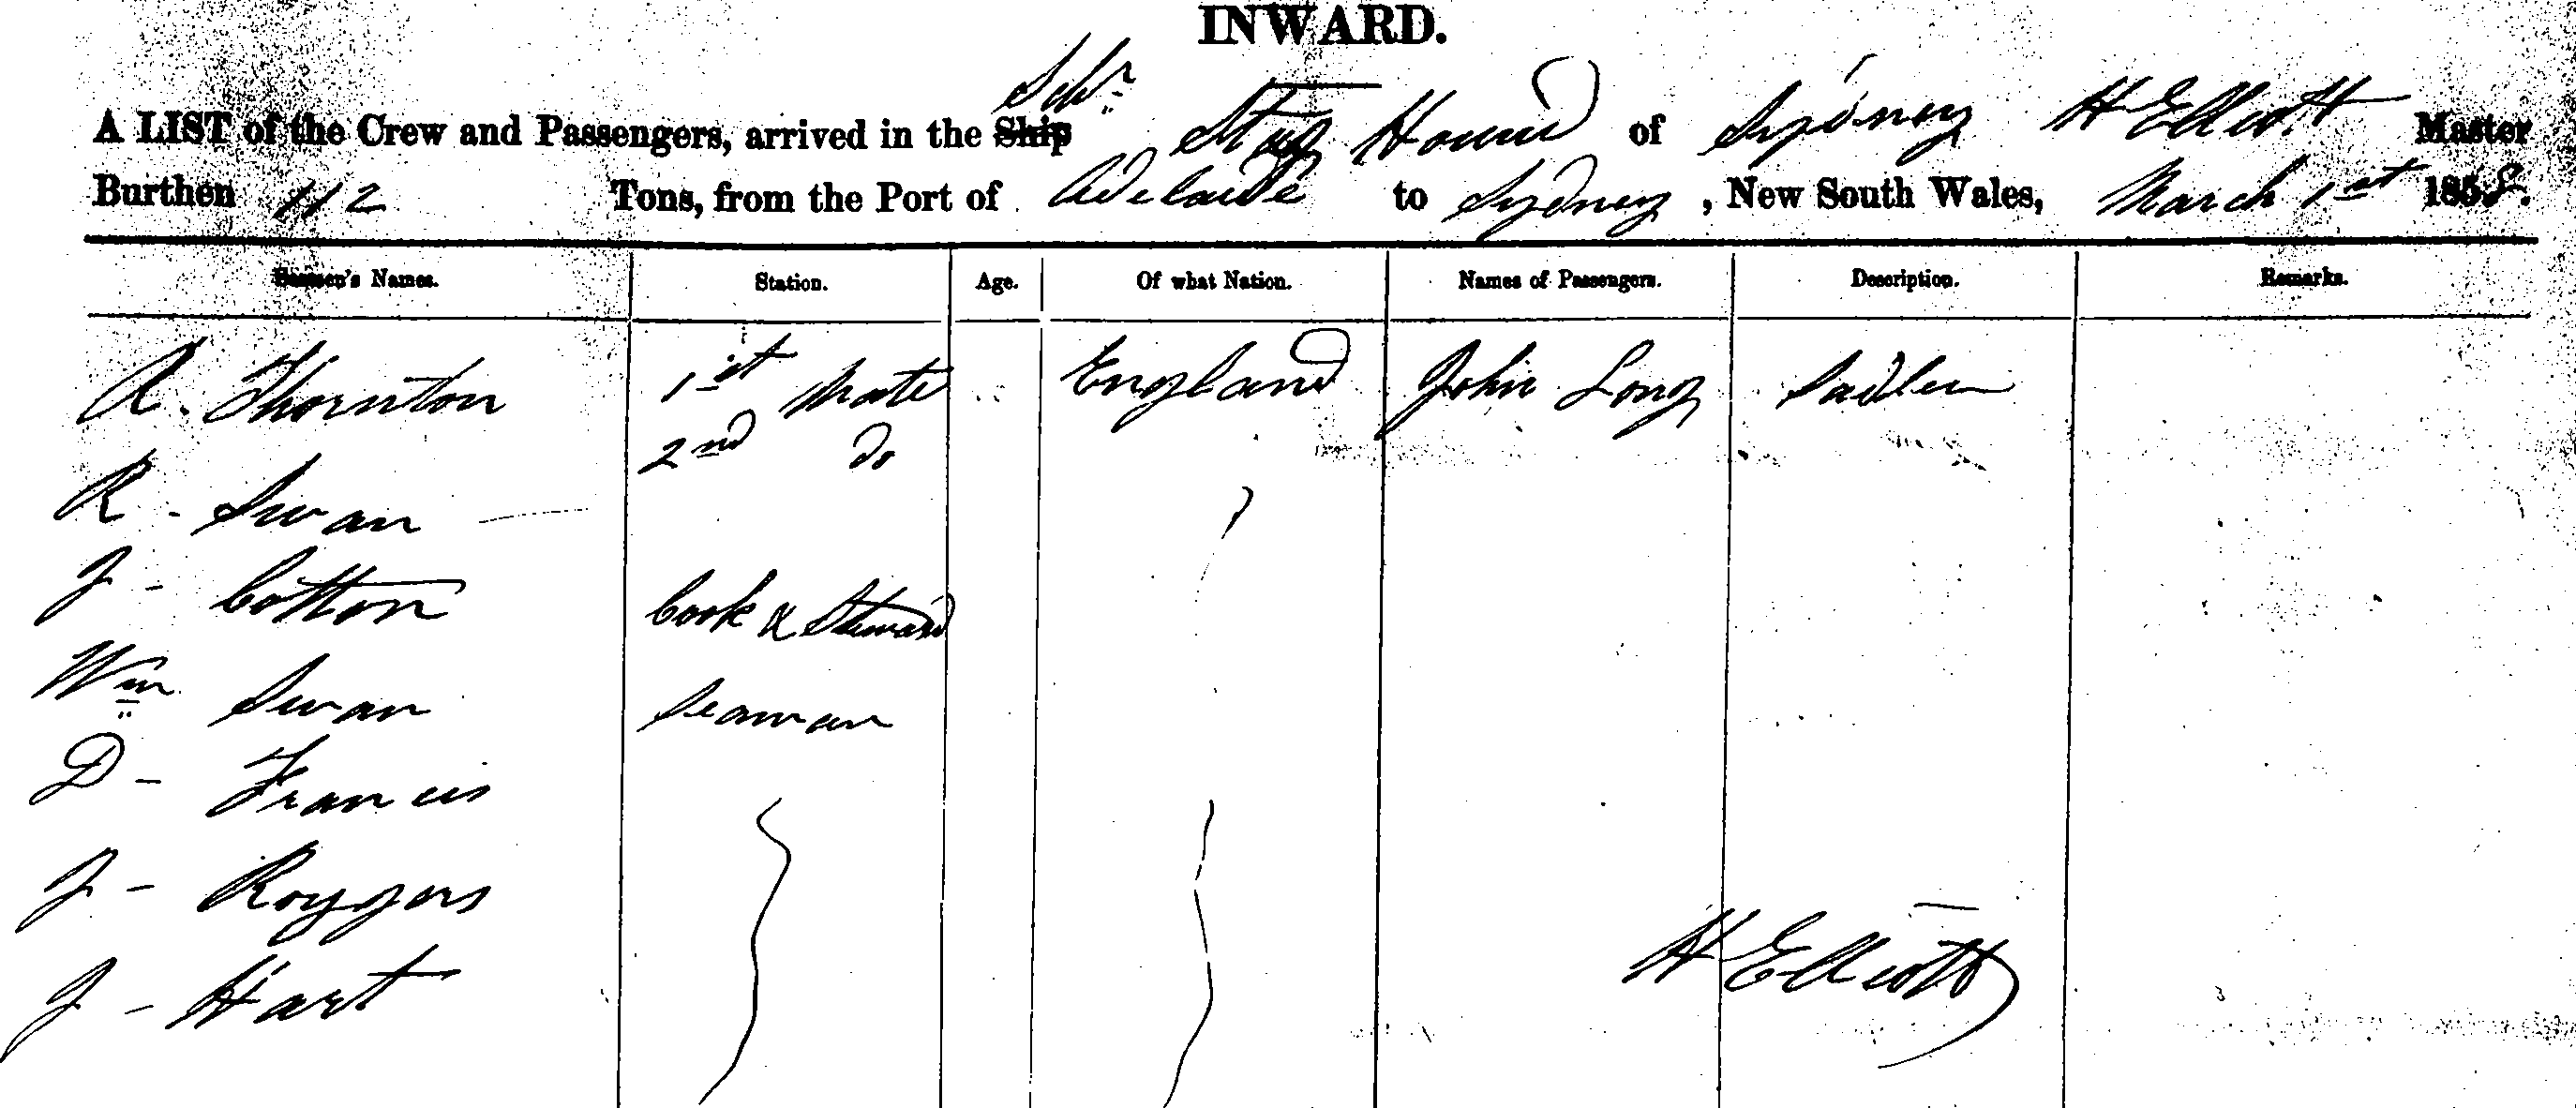 INWARD.
A LIST of the Crew and Passengers, arrived in the Ship Schr Stag Hound of Sydney H Ellcott Master
Burthen 112 Tons, from the Port of Adelaide to Sydney, New South Wales, March 1st 1858.
Seamen's Names. Station. Age. Of what Nation. Names of Passengers. Description. Remarks.
A. Thornton 1st Mate England John Long Sadler
R - Swan 2nd Do
J - Cotton Cook & Steward
Wm Swan Seaman
D - Francis
J - Roggers
J - Hart
H Ellcott